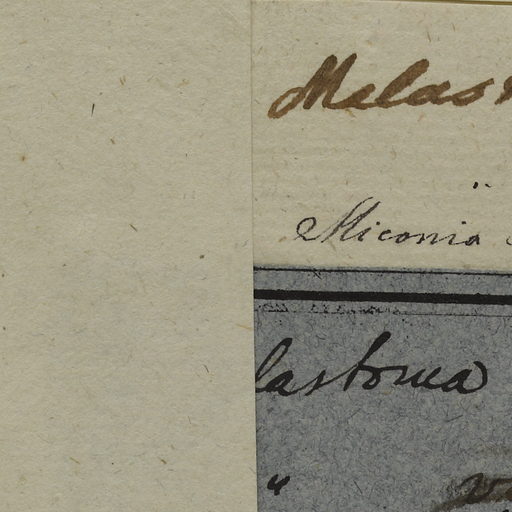 Melas
Miconia
lastoma
"